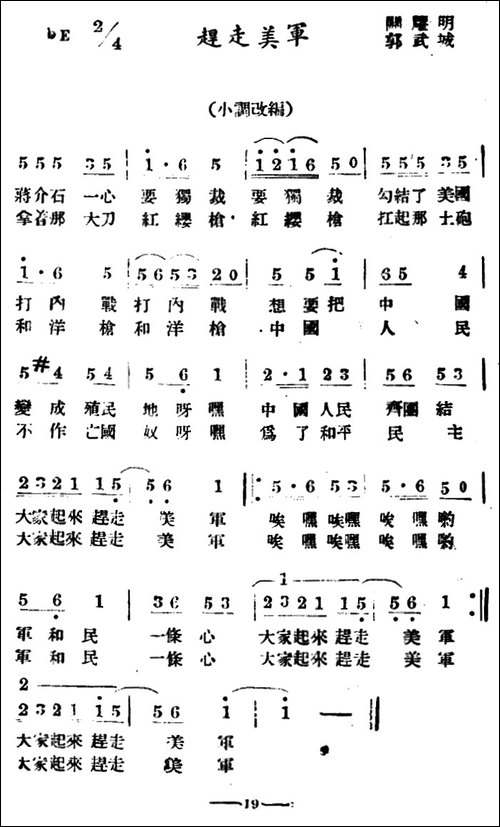 ♭E 2/4 趕走美軍 關耀明
郭武城
(小調改編)
5 5 5 3 5 | 1 · 6 5 | 1 2 1 6 5 0 | 5 5 5 3 5 |
蔣介石 一心 要獨裁 要獨裁 勾結了 美國
拿着那 大刀 紅纓槍 紅纓槍 扛起那 土砲
1 · 6 5 | 5 6 5 3 2 0 | 5 5 1 | 6 5 4 |
打內戰 打內戰 想要把 中國
和洋槍 和洋槍 中國 人民
5 #4 5 4 | 5 6 1 | 2 · 1 2 3 | 5 6 5 3 |
變成殖民地呀嘿 中國人民 齊團結
不作亡國奴呀嘿 爲了和平 民主
2 3 2 1 1 5 | 5 6 1 |: 5 · 6 5 3 | 5 · 6 5 0 |
大家起來 趕走 美軍 唉嘿唉嘿 唉嘿喲
大家起來 趕走 美軍 唉嘿唉嘿 唉嘿喲
1
5 6 1 | 3 6 5 3 | 2 3 2 1 1 5 | 5 6 1 :||
軍和民 一條心 大家起來 趕走 美軍
軍和民 一條心 大家起來 趕走 美軍
2
2 3 2 1 1 5 | 5 6 1 | 1 — ||
大家起來 趕走 美軍
大家起來 趕走 美軍
—19—